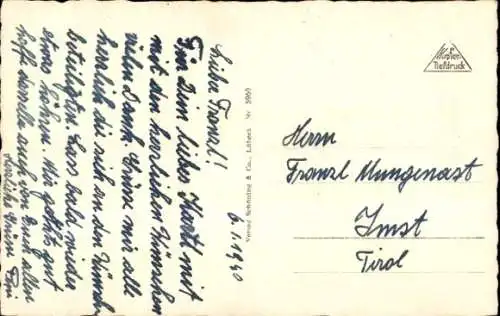 6.1.1940
Lieber Franzl!
Für Dein liebes Kartl mit
mit den herzlichen Wünschen
vielen Dank. Grüße mir alle
herzlich die sich an den Wünsch.
beteiligten. Lass bald wieder
etwas hören. Mir geht's gut
hoffe dasselbe auch von Euch allen
Herzliche Grüße
Verlag Schöning & Co., Lübeck Nr.
Tiefdruck
Herrn
Franzl Mungenast
Imst
Tirol